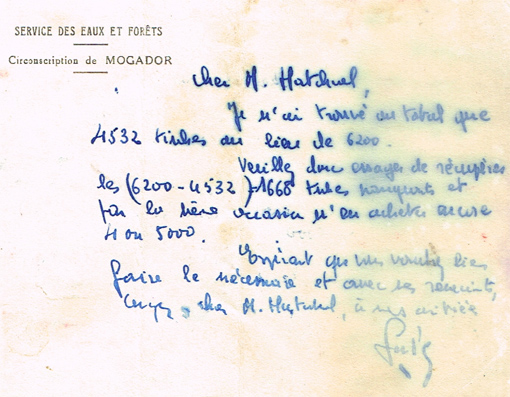 SERVICE DES EAUX ET FORÊTS
Circonscription de MOGADOR
Cher M. Hatchuel,
Je n'ai trouvé au total que
4532 tubes au lieu de 6200.
Veuillez donc essayer de récupérer
les (6200-4532)=1668 tubes manquants et
par la même occasion m'en acheter encore
4 ou 5000.
Espérant que vous voudrez bien
faire le nécessaire et avec mes
cher M. Hatchuel, à mes